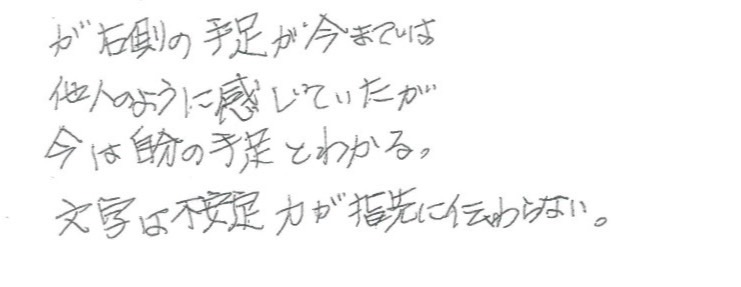 が右側の手足が今までは
他人のように感じていたが
今は自分の手足とわかる。
文字は不安定力が指先に伝わらない。